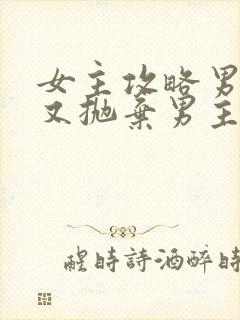 女主攻略男
又抛棄男主
醒時詩酒醉時